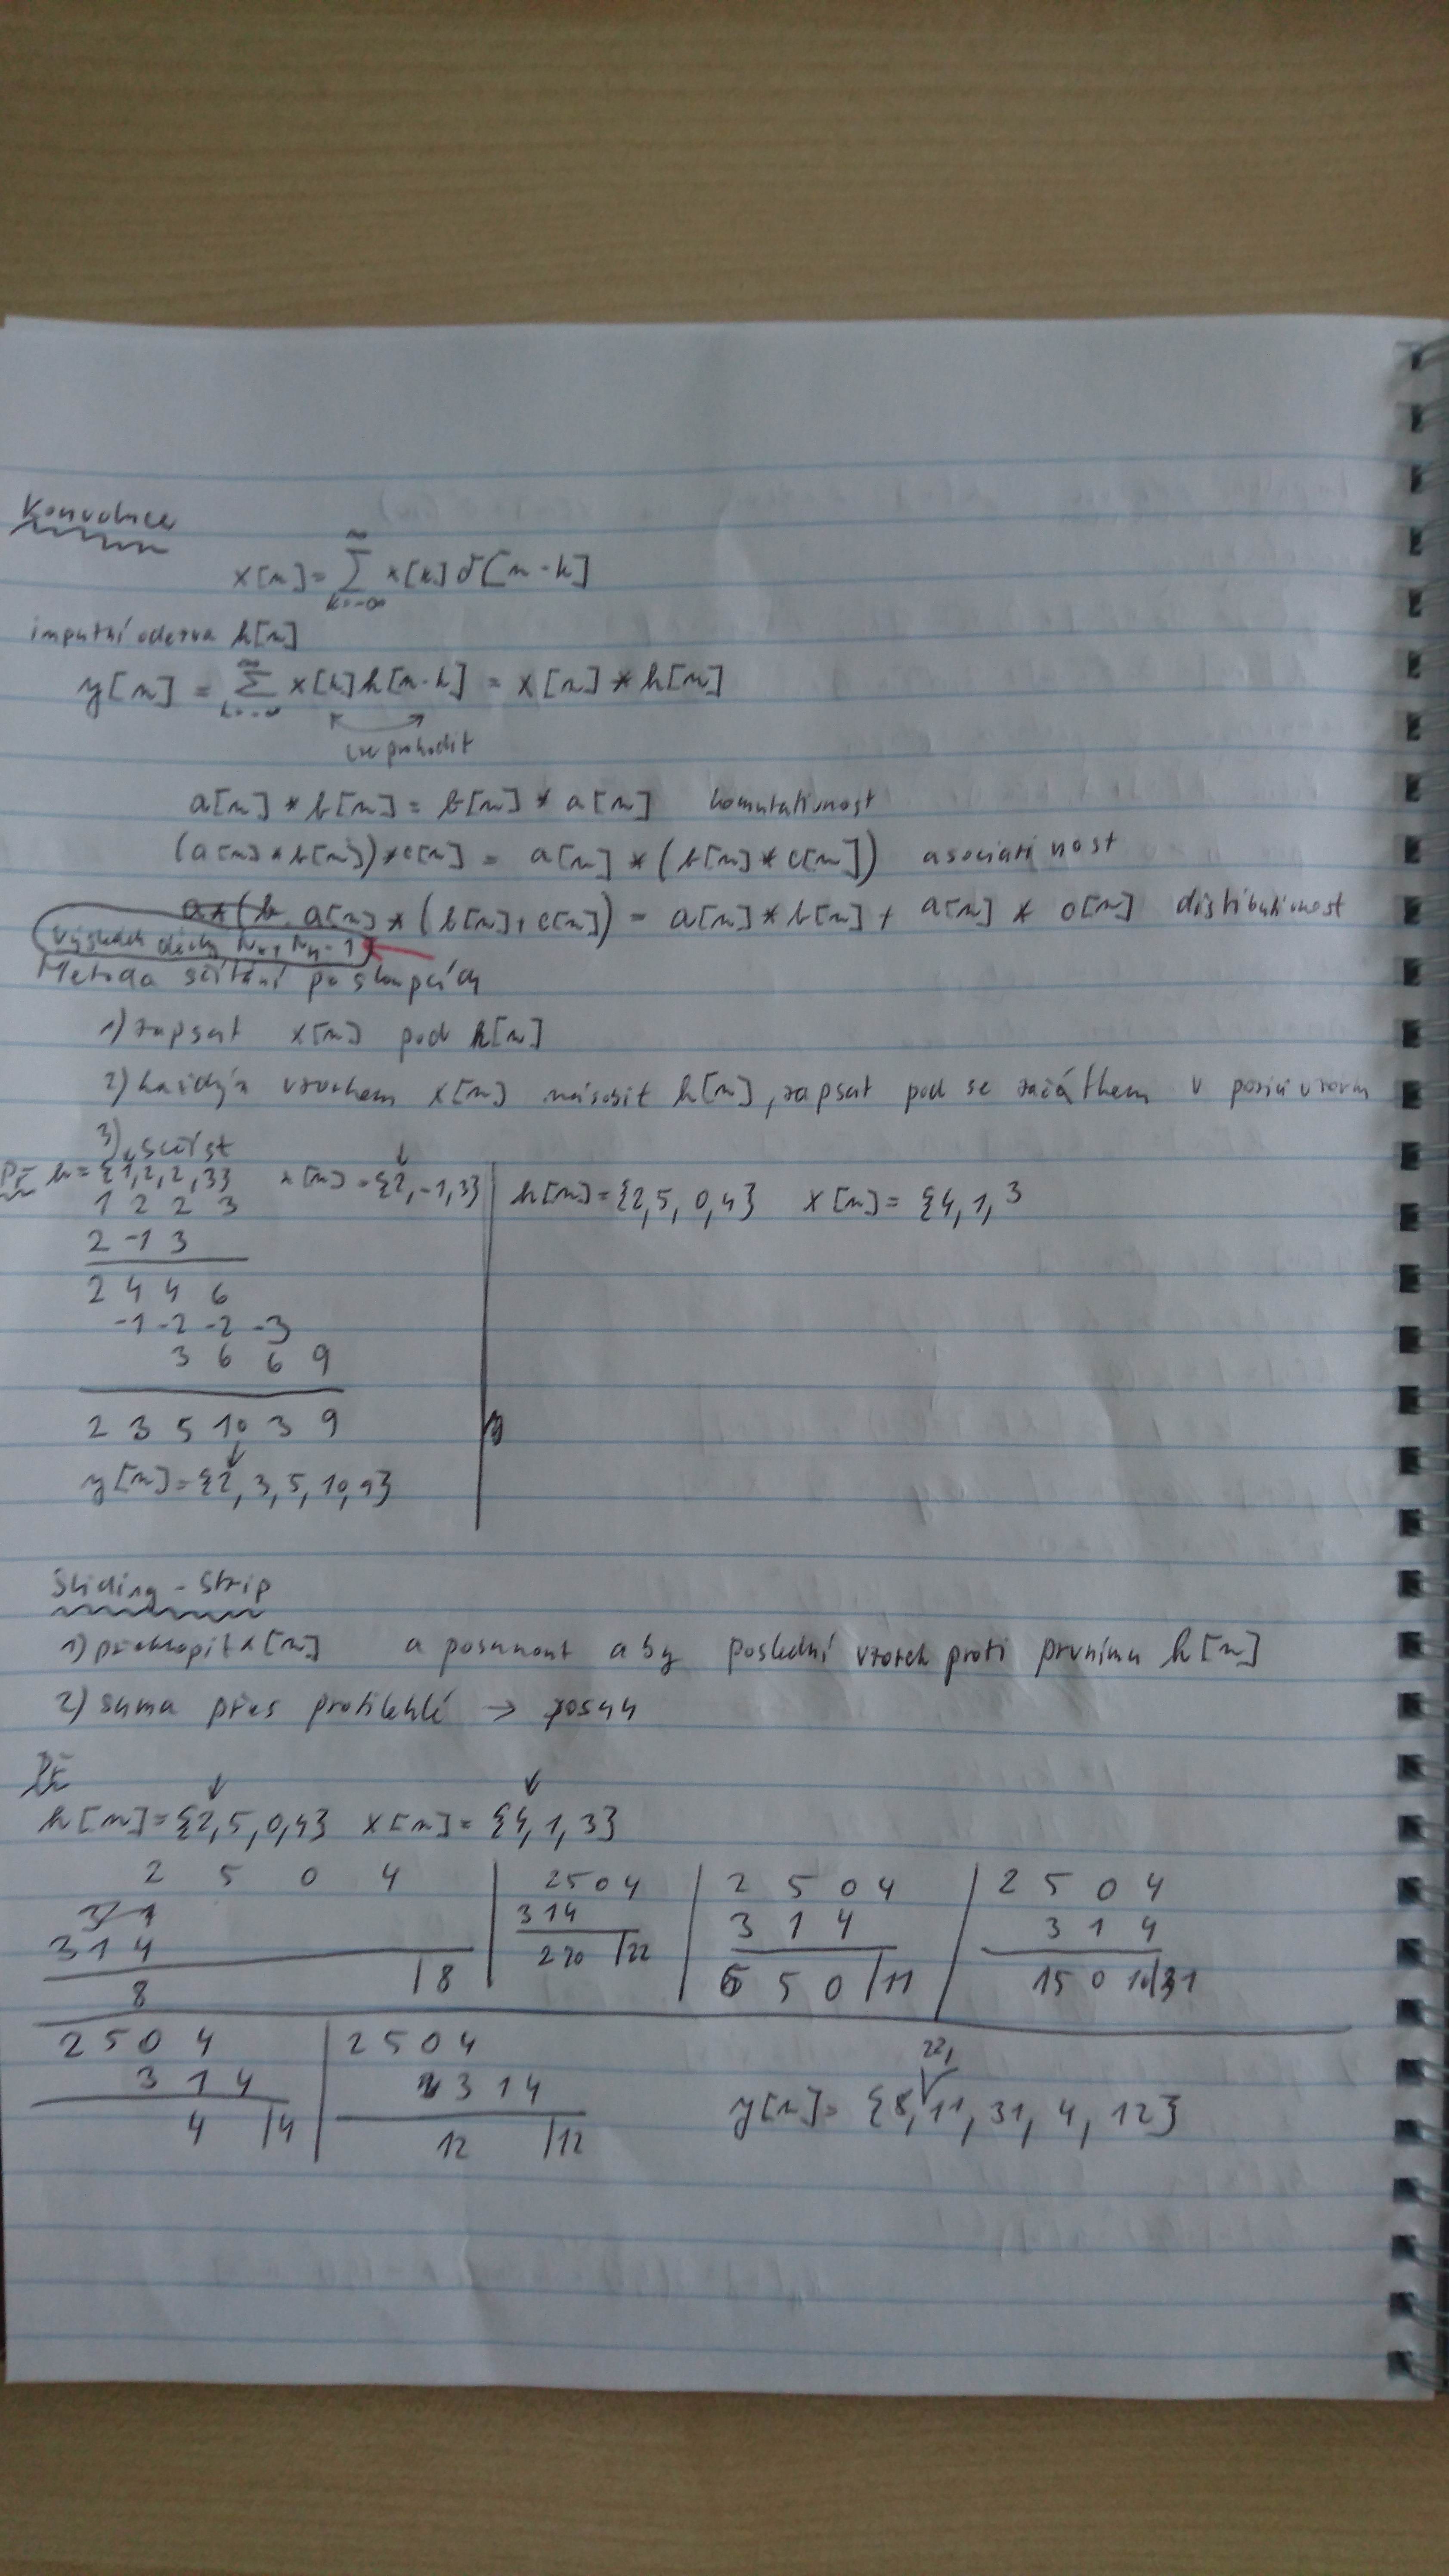 Konvoluce
x[n] = ∞ Σ k=-∞ x[k] δ[n-k]
impulzní odezva h[n]
y[n] = ∞ Σ k=-∞ x[k] h[n-k] = x[n] * h[n]
lze prohodit
a[n] * b[n] = b[n] * a[n] komutativnost
(a[n] * b[n]) * c[n] = a[n] * (b[n] * c[n]) asociativnost
a * (b a[n] * (b[n] + c[n]) = a[n] * b[n] + a[n] * c[n] distibutivnost
výsledek délky Nx+Nh-1
Metoda sčítání po sloupcích
1) zapsat x[n] pod h[n]
2) každým vzorkem x[n] násobit h[n], zapsat pod se začátkem v pozici vzorku
3) sečíst
Př h = {1,2,2,3} x[n] = {2,-1,3} h[n] = {2,5,0,4} x[n] = {4,1,3
1 2 2 3
2 -1 3
2 4 4 6
-1 -2 -2 -3
3 6 6 9
2 3 5 10 3 9
y[n] = {2,3,5,10,9}
Sliding-Strip
1) překlopit x[n] a posunout aby poslední vzorek proti prvnímu h[n]
2) suma přes protilehlé → posun
Př
h[n] = {2,5,0,4} x[n] = {4,1,3}
2 5 0 4 | 2504 | 2 5 0 4 | 2 5 0 4
3 1
3 1 4 | 314 | 3 1 4 | 3 1 4
8 |8 | 2 20 |22 | 6 5 0 |11 | 15 0 16|31
2 5 0 4 | 2 5 0 4
3 1 4 | 3 1 4
4 |4 | 12 |12
22,
y[n] = {8,11,31,4,12}